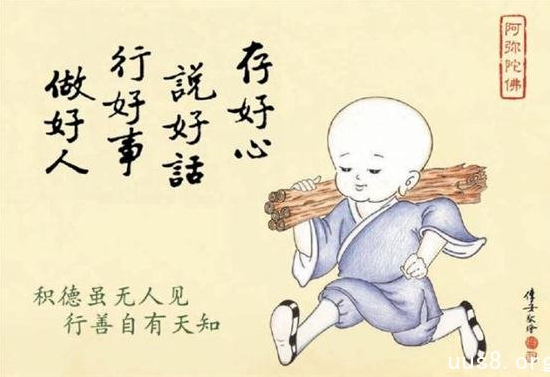 阿弥陀佛
存好心
説好話
行好事
做好人
积德虽无人见
行善自有天知
uus8.org